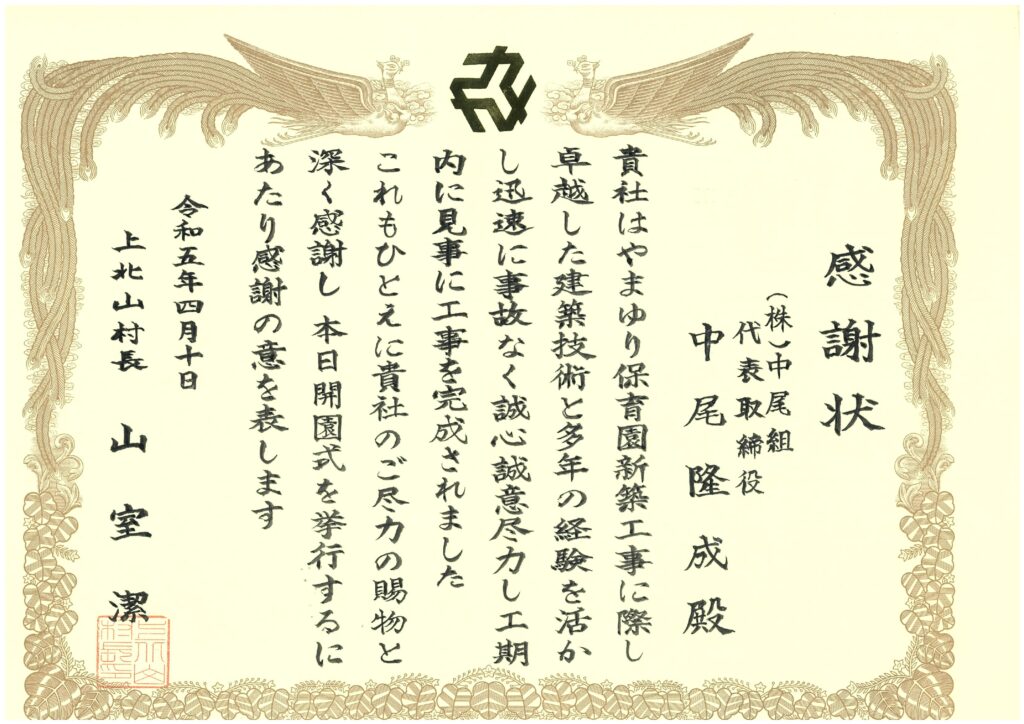 感謝状
(株)中尾組
代表取締役
中尾隆成殿
貴社はやまゆり保育園新築工事に際し
卓越した建築技術と多年の経験を活か
し迅速に事故なく誠心誠意尽力し工期
内に見事に工事を完成されました
これもひとえに貴社のご尽力の賜物と
深く感謝し 本日開園式を挙行するに
あたり感謝の意を表します
令和五年四月十日
上北山村長 山室潔